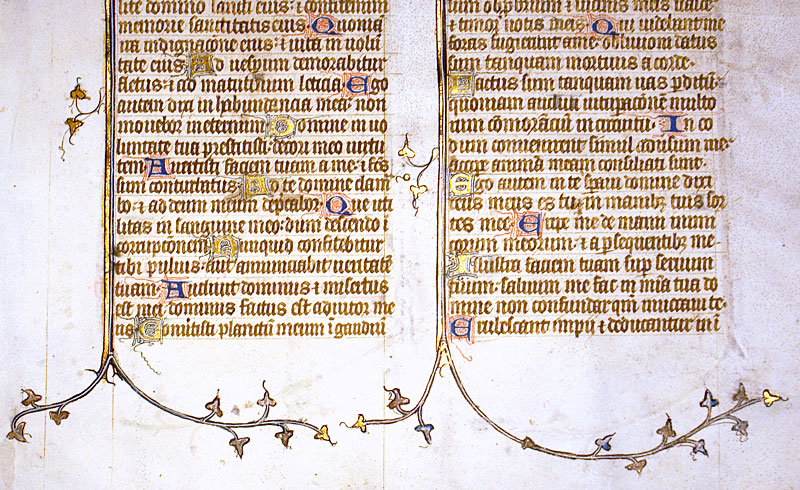 ite domino sancti eius : ⁊ confitemini
memorie sanctitatis eius. Quonia͞
ira indignac͞one eius : ⁊ uita in uolu͞
tate eius Ad uesp͞um demorabitur
fletus : ⁊ ad matutinum leticia Ego
autem dixi in habundancia mea : non
mouebor in eternum. Domine in uo
luntate tua prestitisti : decori meo uirtu
tem Auertisti faciem tuam a me : ⁊ fc͞s
sum conturbatus Ad te domine clam͞
bo : ⁊ ad deum meum dep͞cabor. Que uti
litas in sanguine meo : dum descendo i͞
corruptionem Numquid confitebitur
tibi puluis : aut annunciabit ueritate͞
tuam. Audiuit dominus ⁊ misertus
est mei : dominus factus est adiutor me
us Co͞uertisti planctu͞ meum i͞ gaudiu͞
sum obprbrium ⁊ uicinis meis ualde
⁊ timor notis meis Qui uidebant me
foras fugierunt a me : obliuioni datus
sum tanquam mortuus a corde.
Factus sum tanquam uas p͞ditu͞ :
quoniam audiui uitup͞ac͞one͞ multo
rum co͞moranciu͞ in circuitu. In eo
dum conuenirent simul adu͞sum me
accip͞e animam meam consiliati sunt.
Ego autem in te sp͞aui domine dixi
deus meus es tu : in manibꝫ tuis sor
tes mee Eripe me de manu inimi
corum meorum : ⁊ a p͞sequentibꝫ me.
Illustra faciem tuam sup͞ seruum
tuum. saluum me fac in mi͞a tua do
mine non confundar qm͞ inuocaui te.
Erubescant impii ⁊ deducantur in i͞